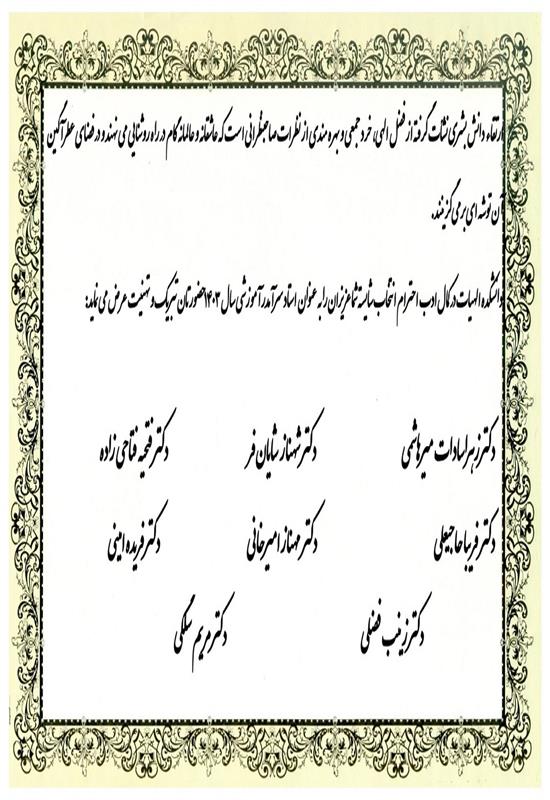 ارتقاء دانش بشری نشات گرفته از فضل الهی، خرد جمعی و بهره مندی از نظرات صاحبنظرانی است که عاشقانه و عالمانه گام در راه روشنایی می نهند و در فضای عطرآگین
آن توشه ای بر می گزینند.
دانشکده الهیات در کمال ادب احترام انتخاب شایسته شما عزیزان را به عنوان استاد سرآمد آموزشی سال ۱۴۰۳ حضورتان تبریک و تهنیت عرض می نماید:
دکتر زهرا سادات میرهاشمی دکتر شهناز شایان فر دکتر فتحیه فتاحی زاده
دکتر فریبا حاجیعلی دکتر مهناز امیرخانی دکتر فریده امینی
دکتر زینب فضلی دکتر مریم مشکی